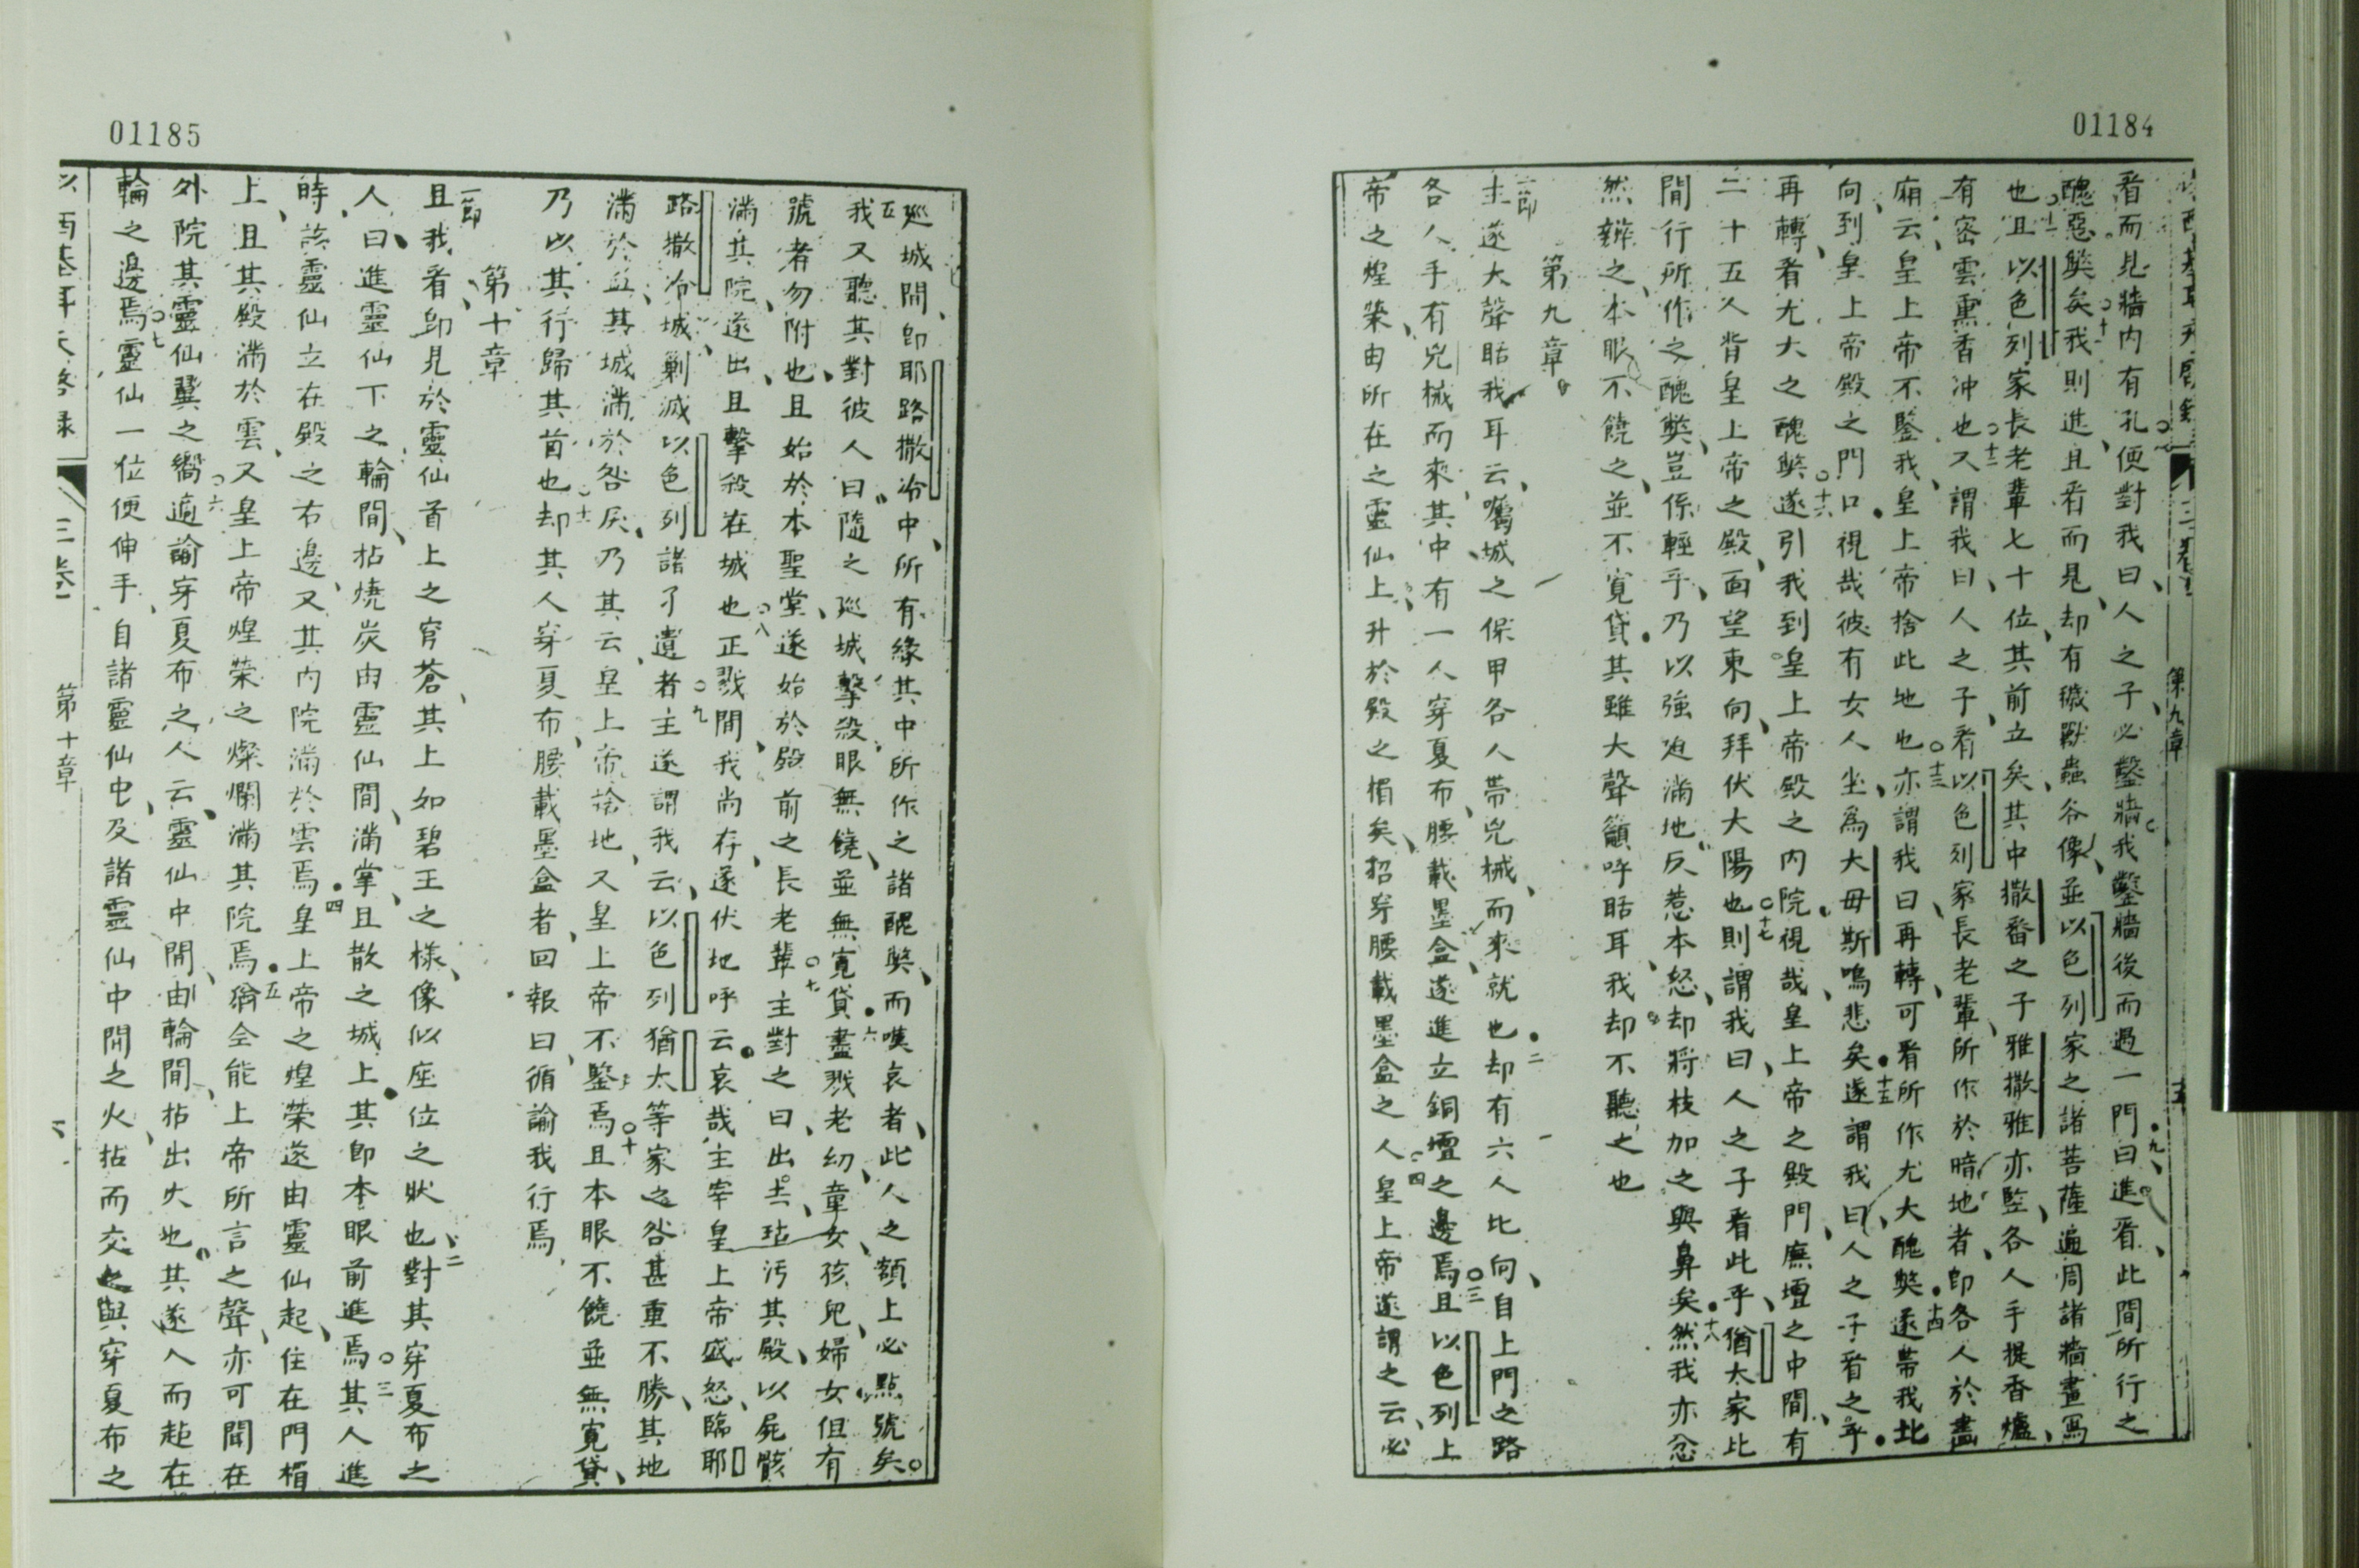 01184
看而見牆内有孔便對我曰人之子必鑿牆我鑿牆後而過一門曰進看此間所行之
醜惡獘矣我則進且看而見却有穢獸蟲谷像並以色列家之諸菩薩遍周諸牆畫寫
也且以色列家長老輩七十位其前立矣其中撒番之子雅撒雅亦監各人手提香爐
有密雲熏香冲也又謂我曰人之子看以色列家長老輩所作於暗地者即各人於畫
廂云皇上帝不鑒我皇上帝捨此地也亦謂我曰再轉可看所作尤大醜獘遂帶我北
向到皇上帝殿之門口視哉彼有女人坐爲大毋斯嗚悲矣遂謂我曰人之子看之乎
再轉看尤大之醜獘遂引我到皇上帝殿之内院視哉皇上帝之殿門廡壇之中間有
二十五人背皇上帝之殿面望東向拜伏大陽也則謂我曰人之子看此乎猶太家比
間行所作之醜獘豈係輕乎乃以強迫滿地反惹本怒却將枝加之與鼻矣然我亦忿
然辦之本眼不饒之並不寬貸其雖大聲籲呼聒耳我却不聽之也
第九章
一節
主遂大聲聒我耳云囑城之保甲各人帶兇械而來就也却有六人比向自上門之路
各人手有兇械而來其中有一人穿夏布腰載墨盒遂進立銅壇之邊焉且以色列上
帝之煌榮由所在之靈仙上升於殿之楣矣招穿腰載墨盒之人皇上帝遂謂之云必
三卷
第九章
01185
廵城間即耶路撒冷中所有緣其中所作之諸醜獘而嘆哀者此人之額上必點號矣
我又聽其對彼人曰隨之廵城擊殺眼無饒並無寬貸盡戮老幼童女孩兒婦女但有
號者勿附也且始於本聖堂遂始於殿前之長老輩主對之曰出去玷污其殿以屍骸
滿其院遂出且擊殺在城也正戮間我尚存遂伏地呼云哀哉主宰皇上帝盛怒臨耶
路撒冷城剿滅以色列諸孑遺者主遂謂我云以色列猶太等家之咎甚重不勝其地
滿於血其城滿於咎戾乃其云皇上帝捨地又皇上帝不鑒焉且本眼不饒並無寬貸
乃以其行歸其首也却其人穿夏布腰載墨盒者回報曰循諭我行焉
第十章
一節
且我看即見於靈仙首上之穹蒼其上如碧玉之樣像似座位之狀也對其穿夏布之
人曰進靈仙下之輪間拈燒炭由靈仙間滿掌且散之城上其即本眼前進焉其人進
時該靈仙立在殿之右邊又其内院滿於雲焉皇上帝之煌榮遂由靈仙起住在門楣
上且其殿滿於雲又皇上帝煌榮之燦爛滿其院焉猶全能上帝所言之聲亦可聞在
外院其靈仙翼之嚮遍諭穿夏布之人云靈仙中間由輪間拈出火也其遂入而起在
輪之邊焉靈仙一位便伸手自諸靈仙屯及諸靈仙中間之火拈而交之與穿夏布之
三卷
第十章